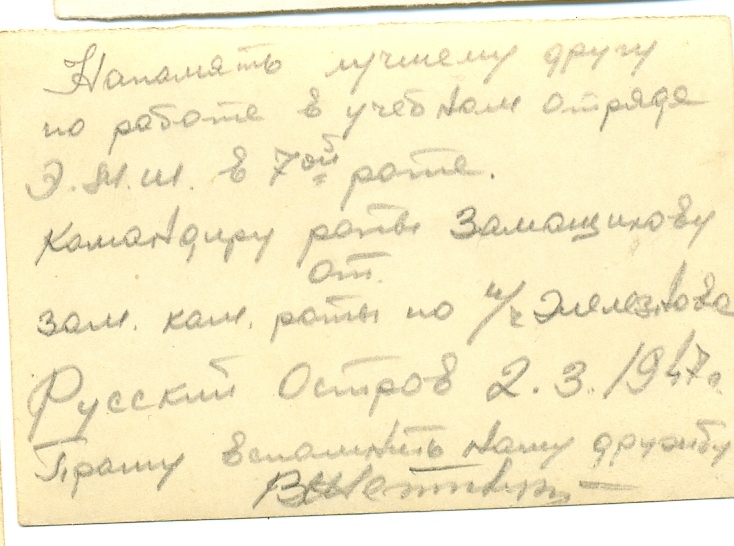 Напамять лучшему другу
по работе в учебном отряде
Э.М.Ш. в 7ой роте.
Командиру роты Замащикову
от
зам. ком. роты по п/ч Железнова
Русский Остров 2.3.1947г.
Прошу вспомнить нашу дружбу